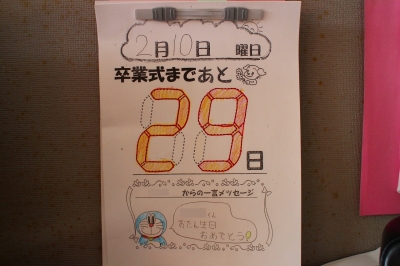 2月10日 曜日
卒業式まであと
29日
からの一言メッセージ
くん
おたん生日
おめでとう